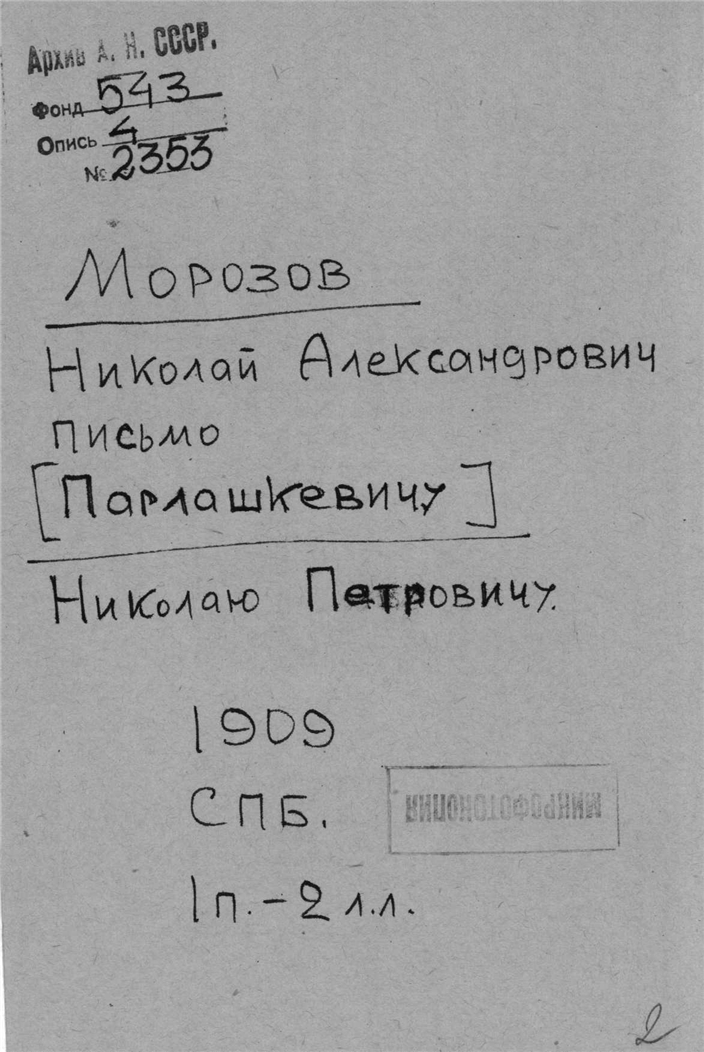 Архив А. Н. СССР.
Фонд 543
Опись 4
№ 2353
Морозов
Николай Александрович
письмо
[Парлашкевичу]
Николаю Петровичу.
1909
СПБ.
МИКРОФОТОКОПИЯ
1 п. - 2 л.л.
2